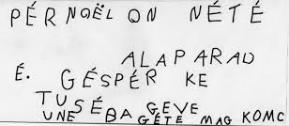 PÉRNOËL ON NÉTÉ
ALAPARAD
É. GÉSPÉR KE
TUSÉBA GEVE
UNE GÉTÉ MAG KOMC